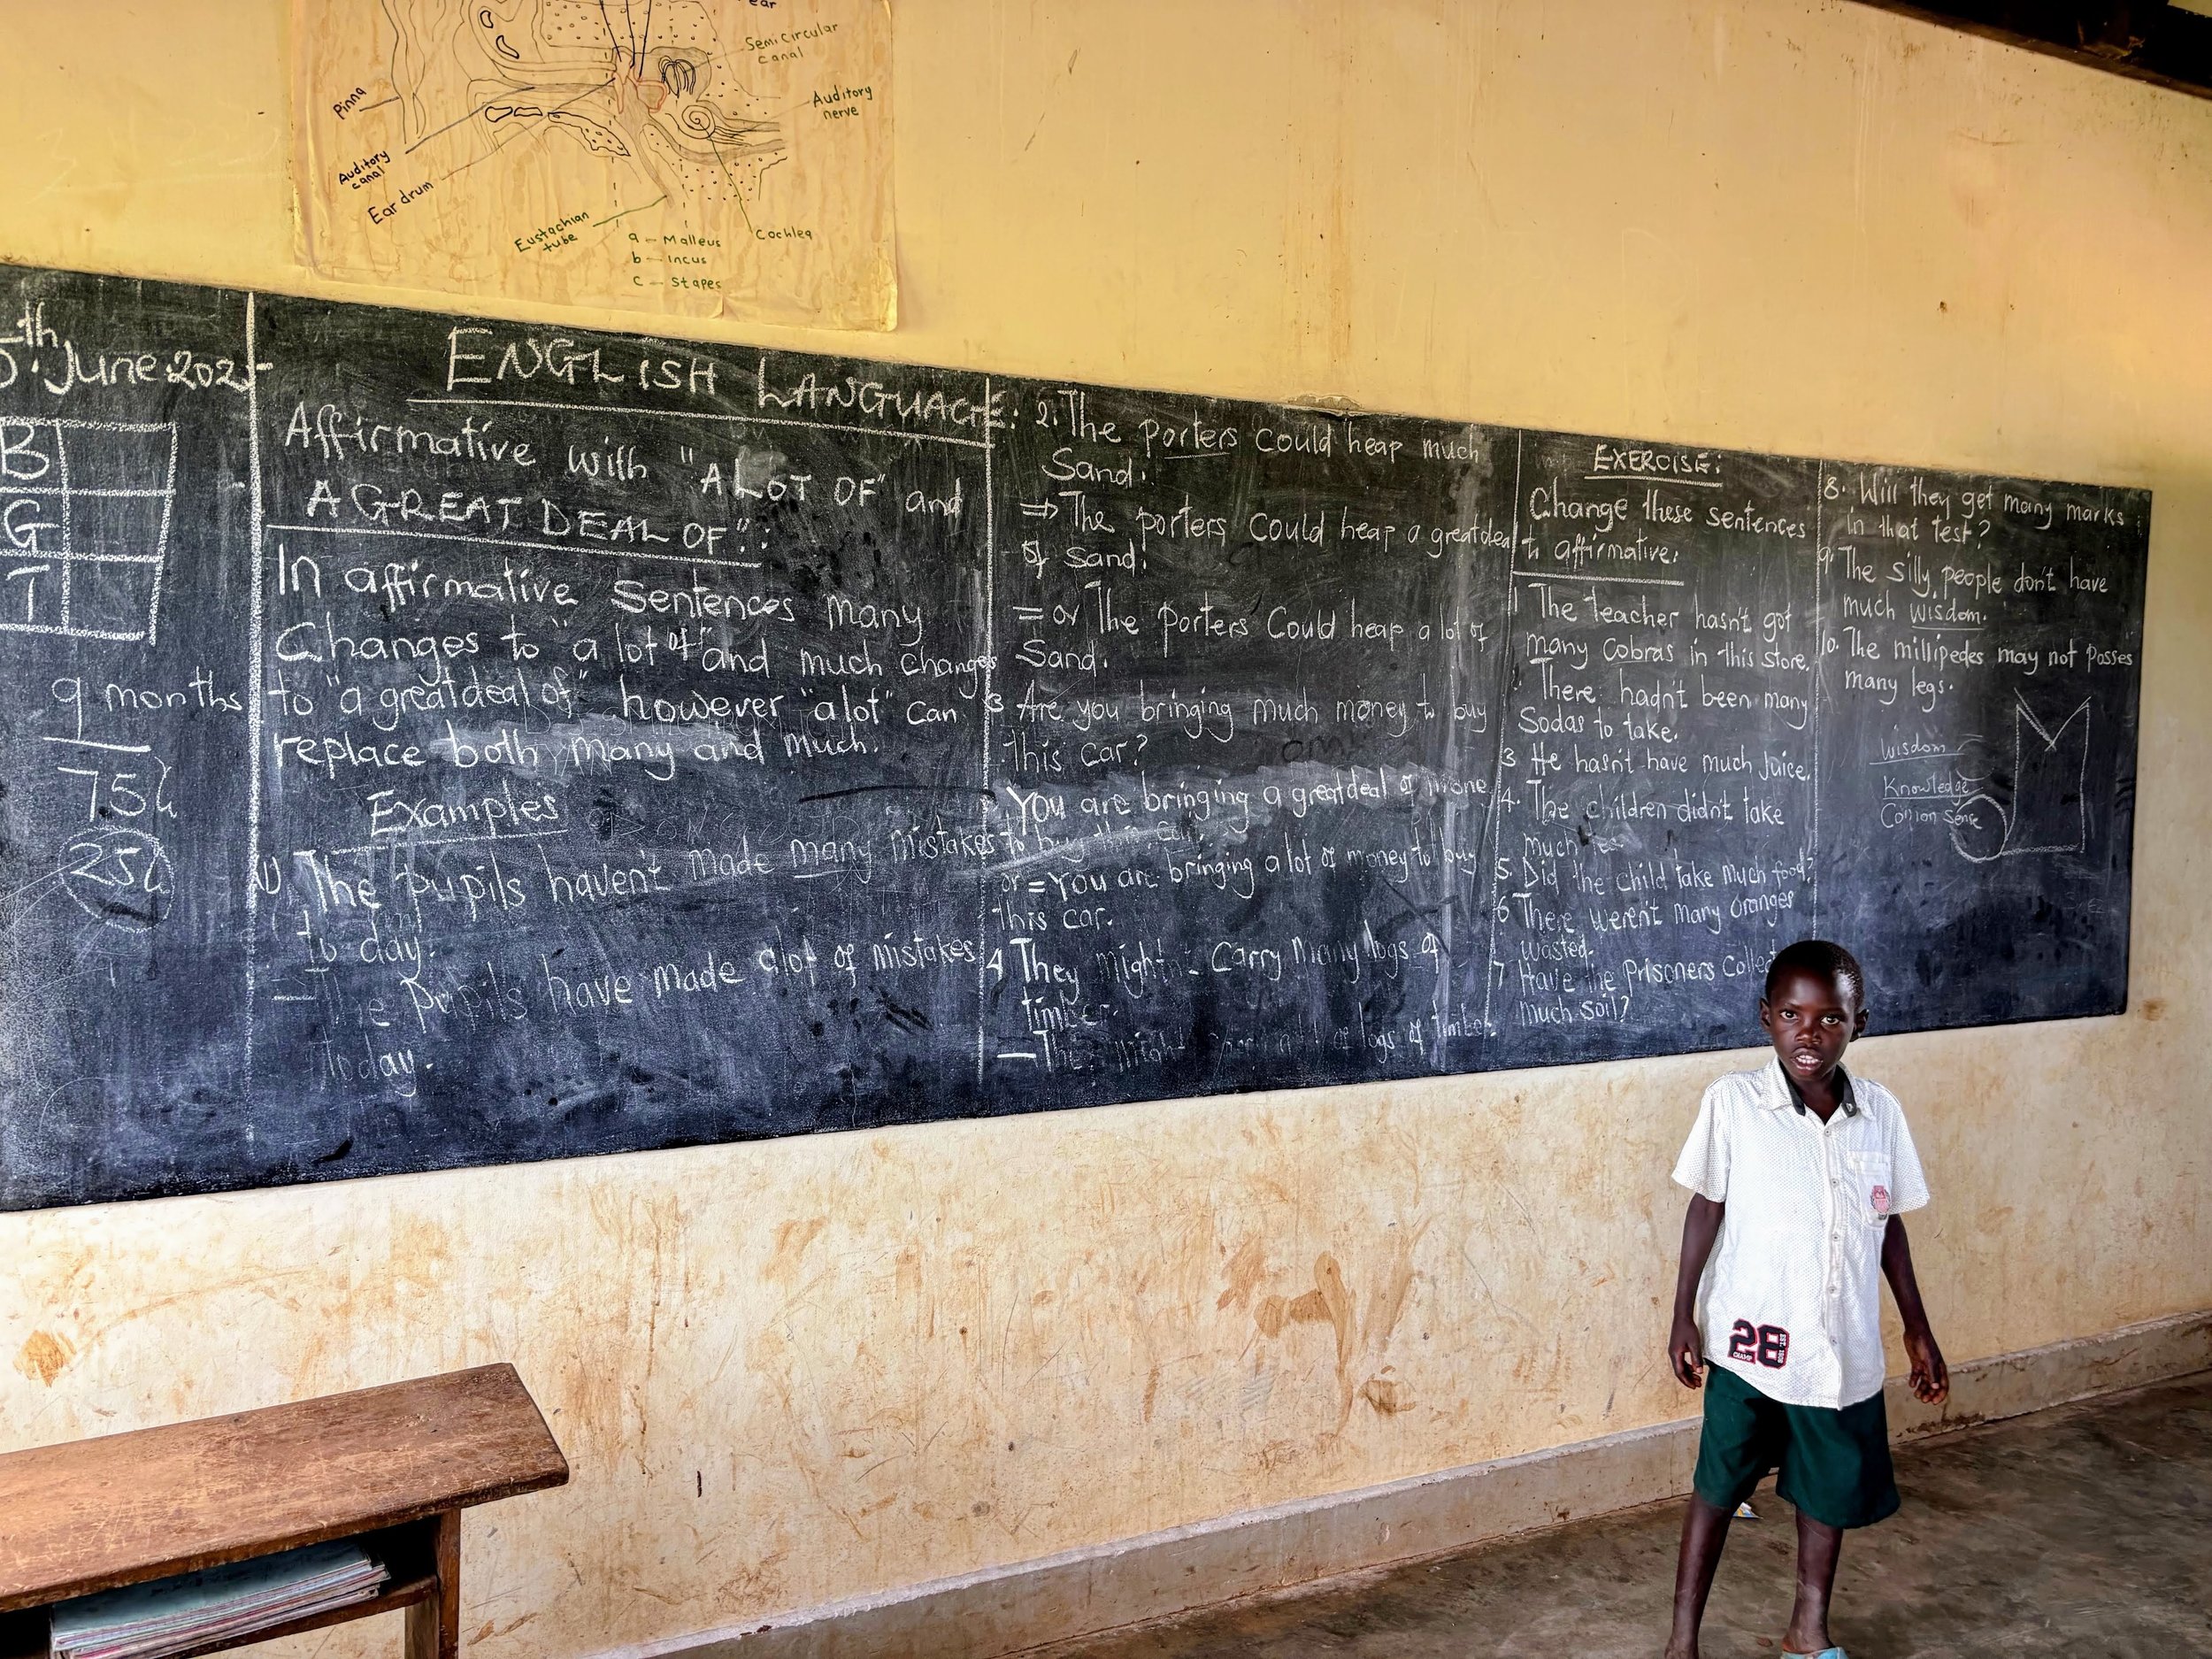 ear
Semicircular
canal
Pinna
Auditory
nerve
Auditory
canal
Ear drum
Eustachian
tube
Cochlea
a - Malleus
b - Incus
c - Stapes
th
June 202
B
G
T
9 months
75h
25h
ENGLISH LANGUAGE:
Affirmative with "A LOT OF" and
A GREAT DEAL OF":
In affirmative Sentences many
Changes to "a lot of" and much changes
to "a great deal of" however "a lot" can
replace both many and much.
Examples
1) The pupils haven't made many mistakes
to day.
= The Pupils have made alot of mistakes
today.
2. The porters could heap much
Sand.
⇒ The porters could heap a great deal
of sand.
= or The porters Could heap a lot of
Sand.
3 Are you bringing much money to buy
this car?
You are bringing a great deal of mone
to buy this car.
or = You are bringing a lot of money to buy
this car.
4 They might carry many logs of
timber.
of logs of timber.
EXERCISE:
Change these sentences
to affirmative:
1 The teacher hasn't got
many Cobras in this store.
There hadn't been many
Sodas to take.
3 He hasn't have much juice.
4. The children didn't take
much
5. Did the child take much food?
6 There weren't many oranges
wasted.
7 Have the Prisoners Collect
much soil?
8. Will they get many marks
in that test?
9. The silly people don't have
much wisdom.
10. The millipedes may not Posses
many legs.
wisdom
Knowledge
Comon Sense
28
CHAMP